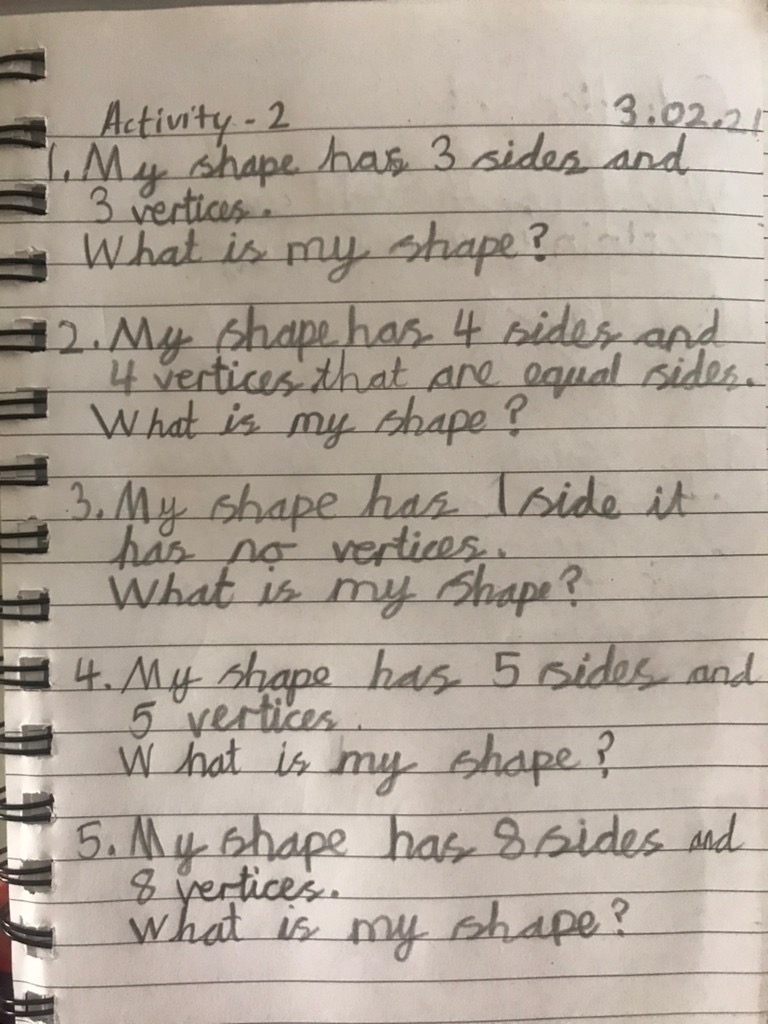 Activity - 2 3.02.21
1. My shape has 3 sides and
3 vertices.
What is my shape?
2. My shape has 4 sides and
4 vertices that are equal sides.
What is my shape?
3. My shape has 1 side it
has no vertices.
What is my shape?
4. My shape has 5 sides and
5 vertices.
What is my shape?
5. My shape has 8 sides and
8 vertices.
What is my shape?